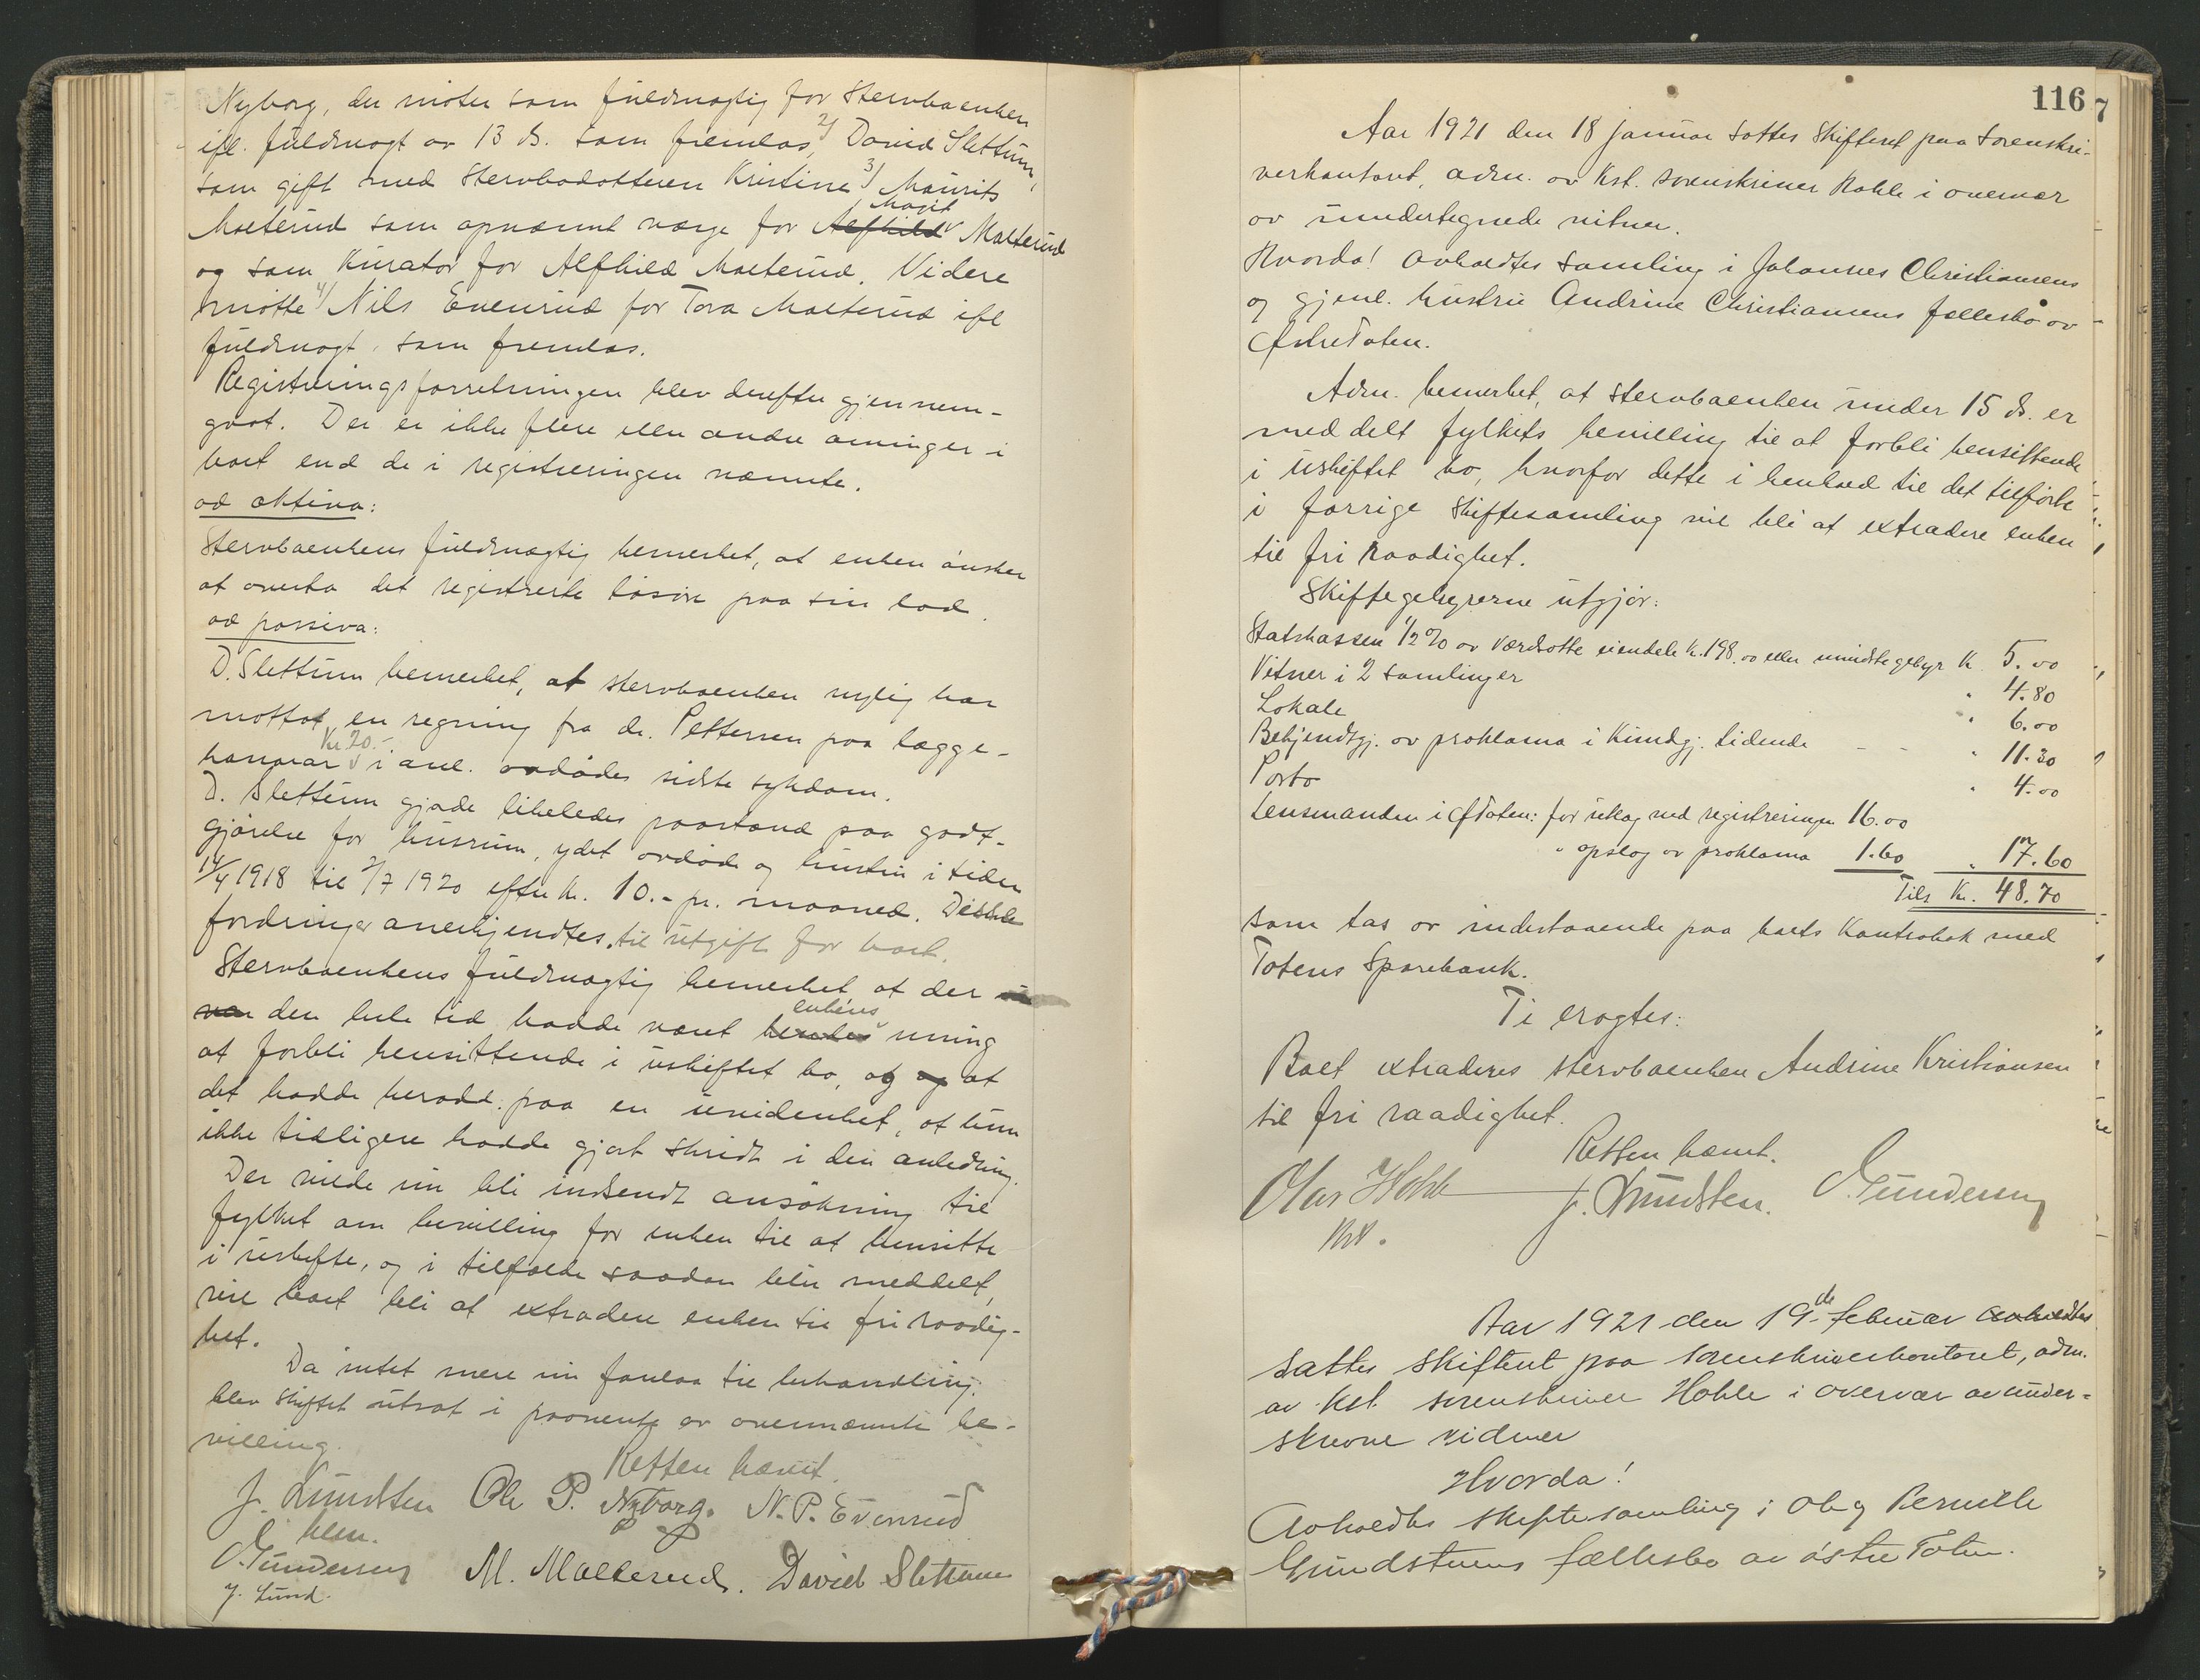 Nyborg, der møter som fuldmægtig for stervboenken
ifl. fuldmagt av 13 ds. som fremlas, 2/ David Slettum,
som gift med stervbodatteren Kristine 3/ Maurits
Malterud som opnævnt værge for Alfhild Magit Malterud
og som kurator for Alfhild Malterud. Videre
møtte 4/ Nils Evenrud for Tora Malterud ifl
fuldmagt, som fremlas.
Registreringsforretningen blev derefter gjennem-
gaat. Der er ikke flere eller andre aninger i
boet end de i registreringen nævnte.
ad aktiva:
Stervboenkens fuldmægtig bemerket, at enken ønsker
at overta det registrerte løsøre paa sin lod.
ad passiva:
D. Slettum bemerket, at stervboenken nylig har
mottat en regning fra dr. Pettersen paa lægge-
honorar Kr 20.- i anl. avdødes sidste sykdom.
D. Slettum gjorde likeledes paastand paa godt-
gjørelse for husrum, ydet avdøde og hustru i tiden
14/4 1918 til 2/7 1920 efter kr. 10.- pr. maaned. Disse
fordringer anerkjendtes til utgift for boet.
Stervboenkens fuldmægtig bemerket at der
den hele tid hadde været herdes enkens mening
at forbli hensittende i uskiftet bo, og og at
det hadde berodd paa en uvidenhet, at hun
ikke tidligere hadde gjort skridt i den anledning.
Der vilde nu bli indsendt ansøkning til
fylket om bevilling for enken til at hensitte
i uskifte, og i tilfælde saadan blir meddelt,
vil boet bli at extradere enken til fri raadig-
het.
Da intet mere nu forelaa til behandling,
blev skiftet utsat i paavente av overnævnte be-
villing.
Retten hævet.
J. Lundsten Ole P. Nyborg. N. P. Evenrud
O. Gundersen M. Malterud. David Slettum
J. Lund.
116
7
Aar 1921 den 18 januar sattes skifteret paa sorenskri-
verkontoret, adm. av kst. sorenskriver Hohle i overvær
av undertegnede vitner.
Hvorda! Avholdtes samling i Johannes Christiansens
og gjenl. hustru Andrine Christiansens fællesbo av
Østre Toten.
Adm. bemerket, at stervboenken under 15 ds. er
meddelt fylkets bevilling til at forbli hensittende
i uskiftet bo, hvorfor dette i henhold til det tilførte
i forrige skiftesamling vil bli at extradere enken
til fri raadighet.
Skiftegebyrerne utgjør:
Statskassen 1/2 % av værdsatte eiendele kr. 198.00 eller mindstegebyr K 5.00
Vitner i 2 samlinger " 4.80
Lokale " 6.00
Bekjendtgj. av proklama i Kundgj. tidende - - " 11.30
Porto " 4.00
Lensmanden i Ø Toten: for utlæg ved registreringen 16.00
" opslag av proklama 1.60 " 17.60
Tils Kr. 48.70
som tas av indestaaende paa boets kontrabok med
Totens Sparebank.
Ti eragtes:
Boet extraderes stervboenken Andrine Kristiansen
til fri raadighet.
Retten hævet.
Olav Hohle J. Lundsten. O. Gundersen
kst.
Aar 1921 den 19de februar avholdtes
sattes skifteret paa sorenskriverkontoret, adm.
av kst. sorenskriver Hohle i overvær av under-
skrevne vidner
Hvorda!
Avholdtes skiftesamling i Ole og Pernille
Grundstuens fællesbo av østre Toten.